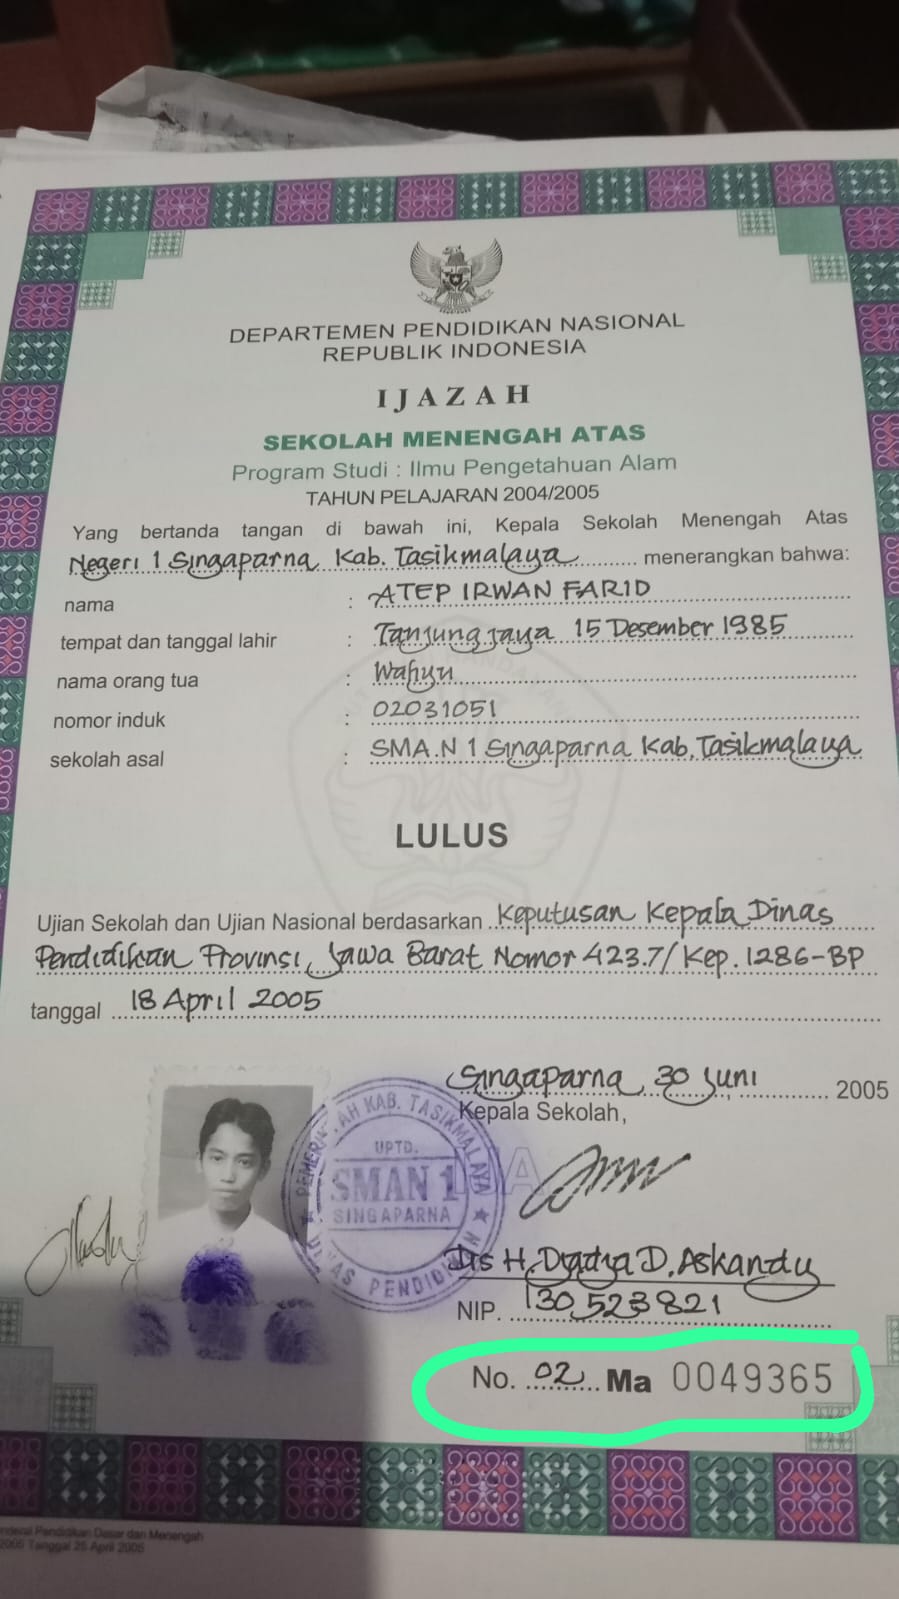 DEPARTEMEN PENDIDIKAN NASIONAL
REPUBLIK INDONESIA
IJAZAH
SEKOLAH MENENGAH ATAS
Program Studi : Ilmu Pengetahuan Alam
TAHUN PELAJARAN 2004/2005
Yang bertanda tangan di bawah ini, Kepala Sekolah Menengah Atas
Negeri 1 Singaparna Kab. Tasikmalaya menerangkan bahwa:
nama : ATEP IRWAN FARID
tempat dan tanggal lahir : Tanjungjaya 15 Desember 1985
nama orang tua : Wahyu
nomor induk : 02031051
sekolah asal : SMA.N 1 Singaparna Kab. Tasikmalaya
LULUS
Ujian Sekolah dan Ujian Nasional berdasarkan Keputusan Kepala Dinas
Pendidikan Provinsi Jawa Barat Nomor 423.7/Kep.1286-BP
tanggal 18 April 2005
Singaparna 30 Juni, 2005
Kepala Sekolah,
KAB. TASIKMALAYA
UPTD.
SMAN 1
SINGAPARNA
Drs H. D. Askandy
NIP. 130 523 821
No. 02 Ma 0049365
Pendidikan Dasar dan Menengah
2005 Tanggal 25 April 2005